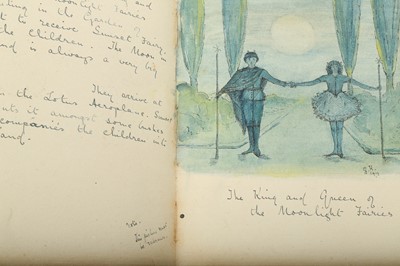 and
Moonlight Fairies
ting in the Garden of Fairy
t to receive Sunset
the Children. The Moon is
and is always a very big
They arrive at
the Lotus Aeroplane. Sunset
uts it amongst some bushes
ccompanies the children into
land.
The King and Queen of
the Moonlight Fairies
Note.